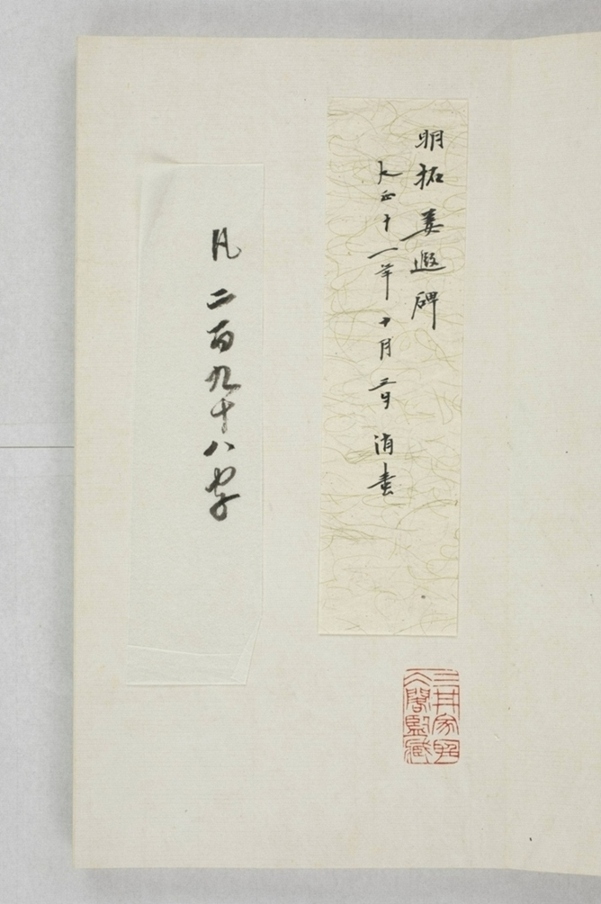 明拓婁寿碑
大正十一年十月二日消毒
凡二百九十八字
三井家聴
冰閣監蔵